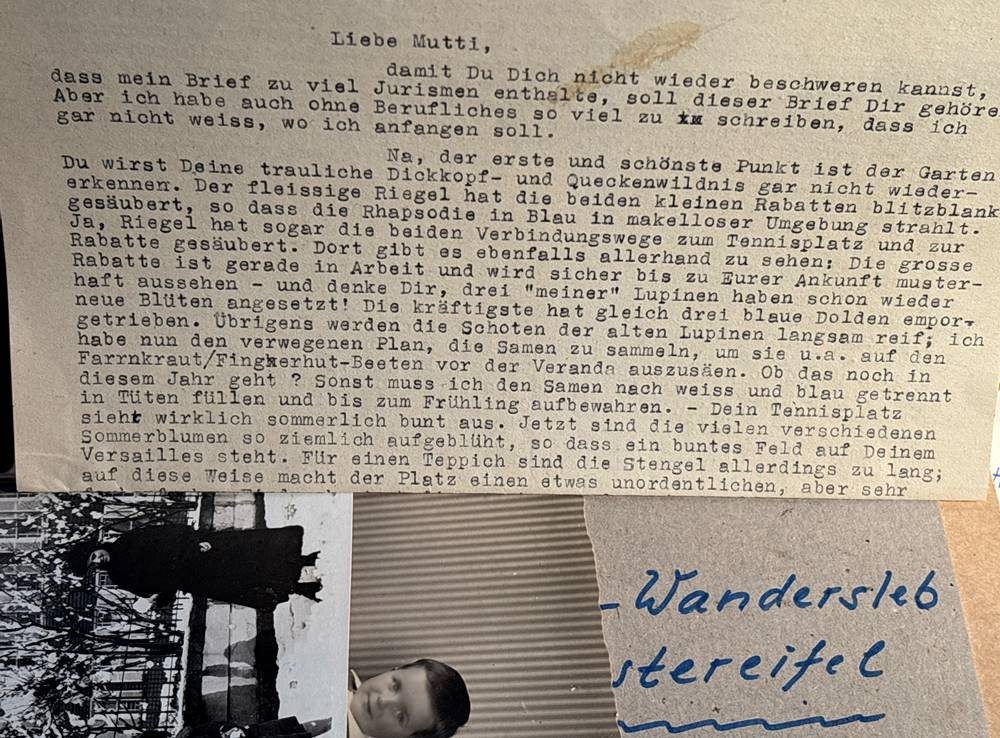 Liebe Mutti,
damit Du Dich nicht wieder beschweren kannst,
dass mein Brief zu viel Jurismen enthalte, soll dieser Brief Dir gehöre
Aber ich habe auch ohne Berufliches so viel zu schreiben, dass ich
gar nicht weiss, wo ich anfangen soll.
Na, der erste und schönste Punkt ist der Garten
Du wirst Deine trauliche Dickkopf- und Queckenwildnis gar nicht wieder-
erkennen. Der fleissige Riegel hat die beiden kleinen Rabatten blitzblank
gesäubert, so dass die Rhapsodie in Blau in makelloser Umgebung strahlt.
Ja, Riegel hat sogar die beiden Verbindungswege zum Tennisplatz und zur
Rabatte gesäubert. Dort gibt es ebenfalls allerhand zu sehen: Die grosse
Rabatte ist gerade in Arbeit und wird sicher bis zu Eurer Ankunft muster-
haft aussehen - und denke Dir, drei "meiner" Lupinen haben schon wieder
neue Blüten angesetzt! Die kräftigste hat gleich drei blaue Dolden empor-
getrieben. Übrigens werden die Schoten der alten Lupinen langsam reif; ich
habe nun den verwegenen Plan, die Samen zu sammeln, um sie u.a. auf den
Farrnkraut/Fingerhut-Beeten vor der Veranda auszusäen. Ob das noch in
diesem Jahr geht ? Sonst muss ich den Samen nach weiss und blau getrennt
in Tüten füllen und bis zum Frühling aufbewahren. - Dein Tennisplatz
sieht wirklich sommerlich bunt aus. Jetzt sind die vielen verschiedenen
Sommerblumen so ziemlich aufgeblüht, so dass ein buntes Feld auf Deinem
Versailles steht. Für einen Teppich sind die Stengel allerdings zu lang;
auf diese Weise macht der Platz einen etwas unordentlichen, aber sehr
- Wandersleb
stereifel